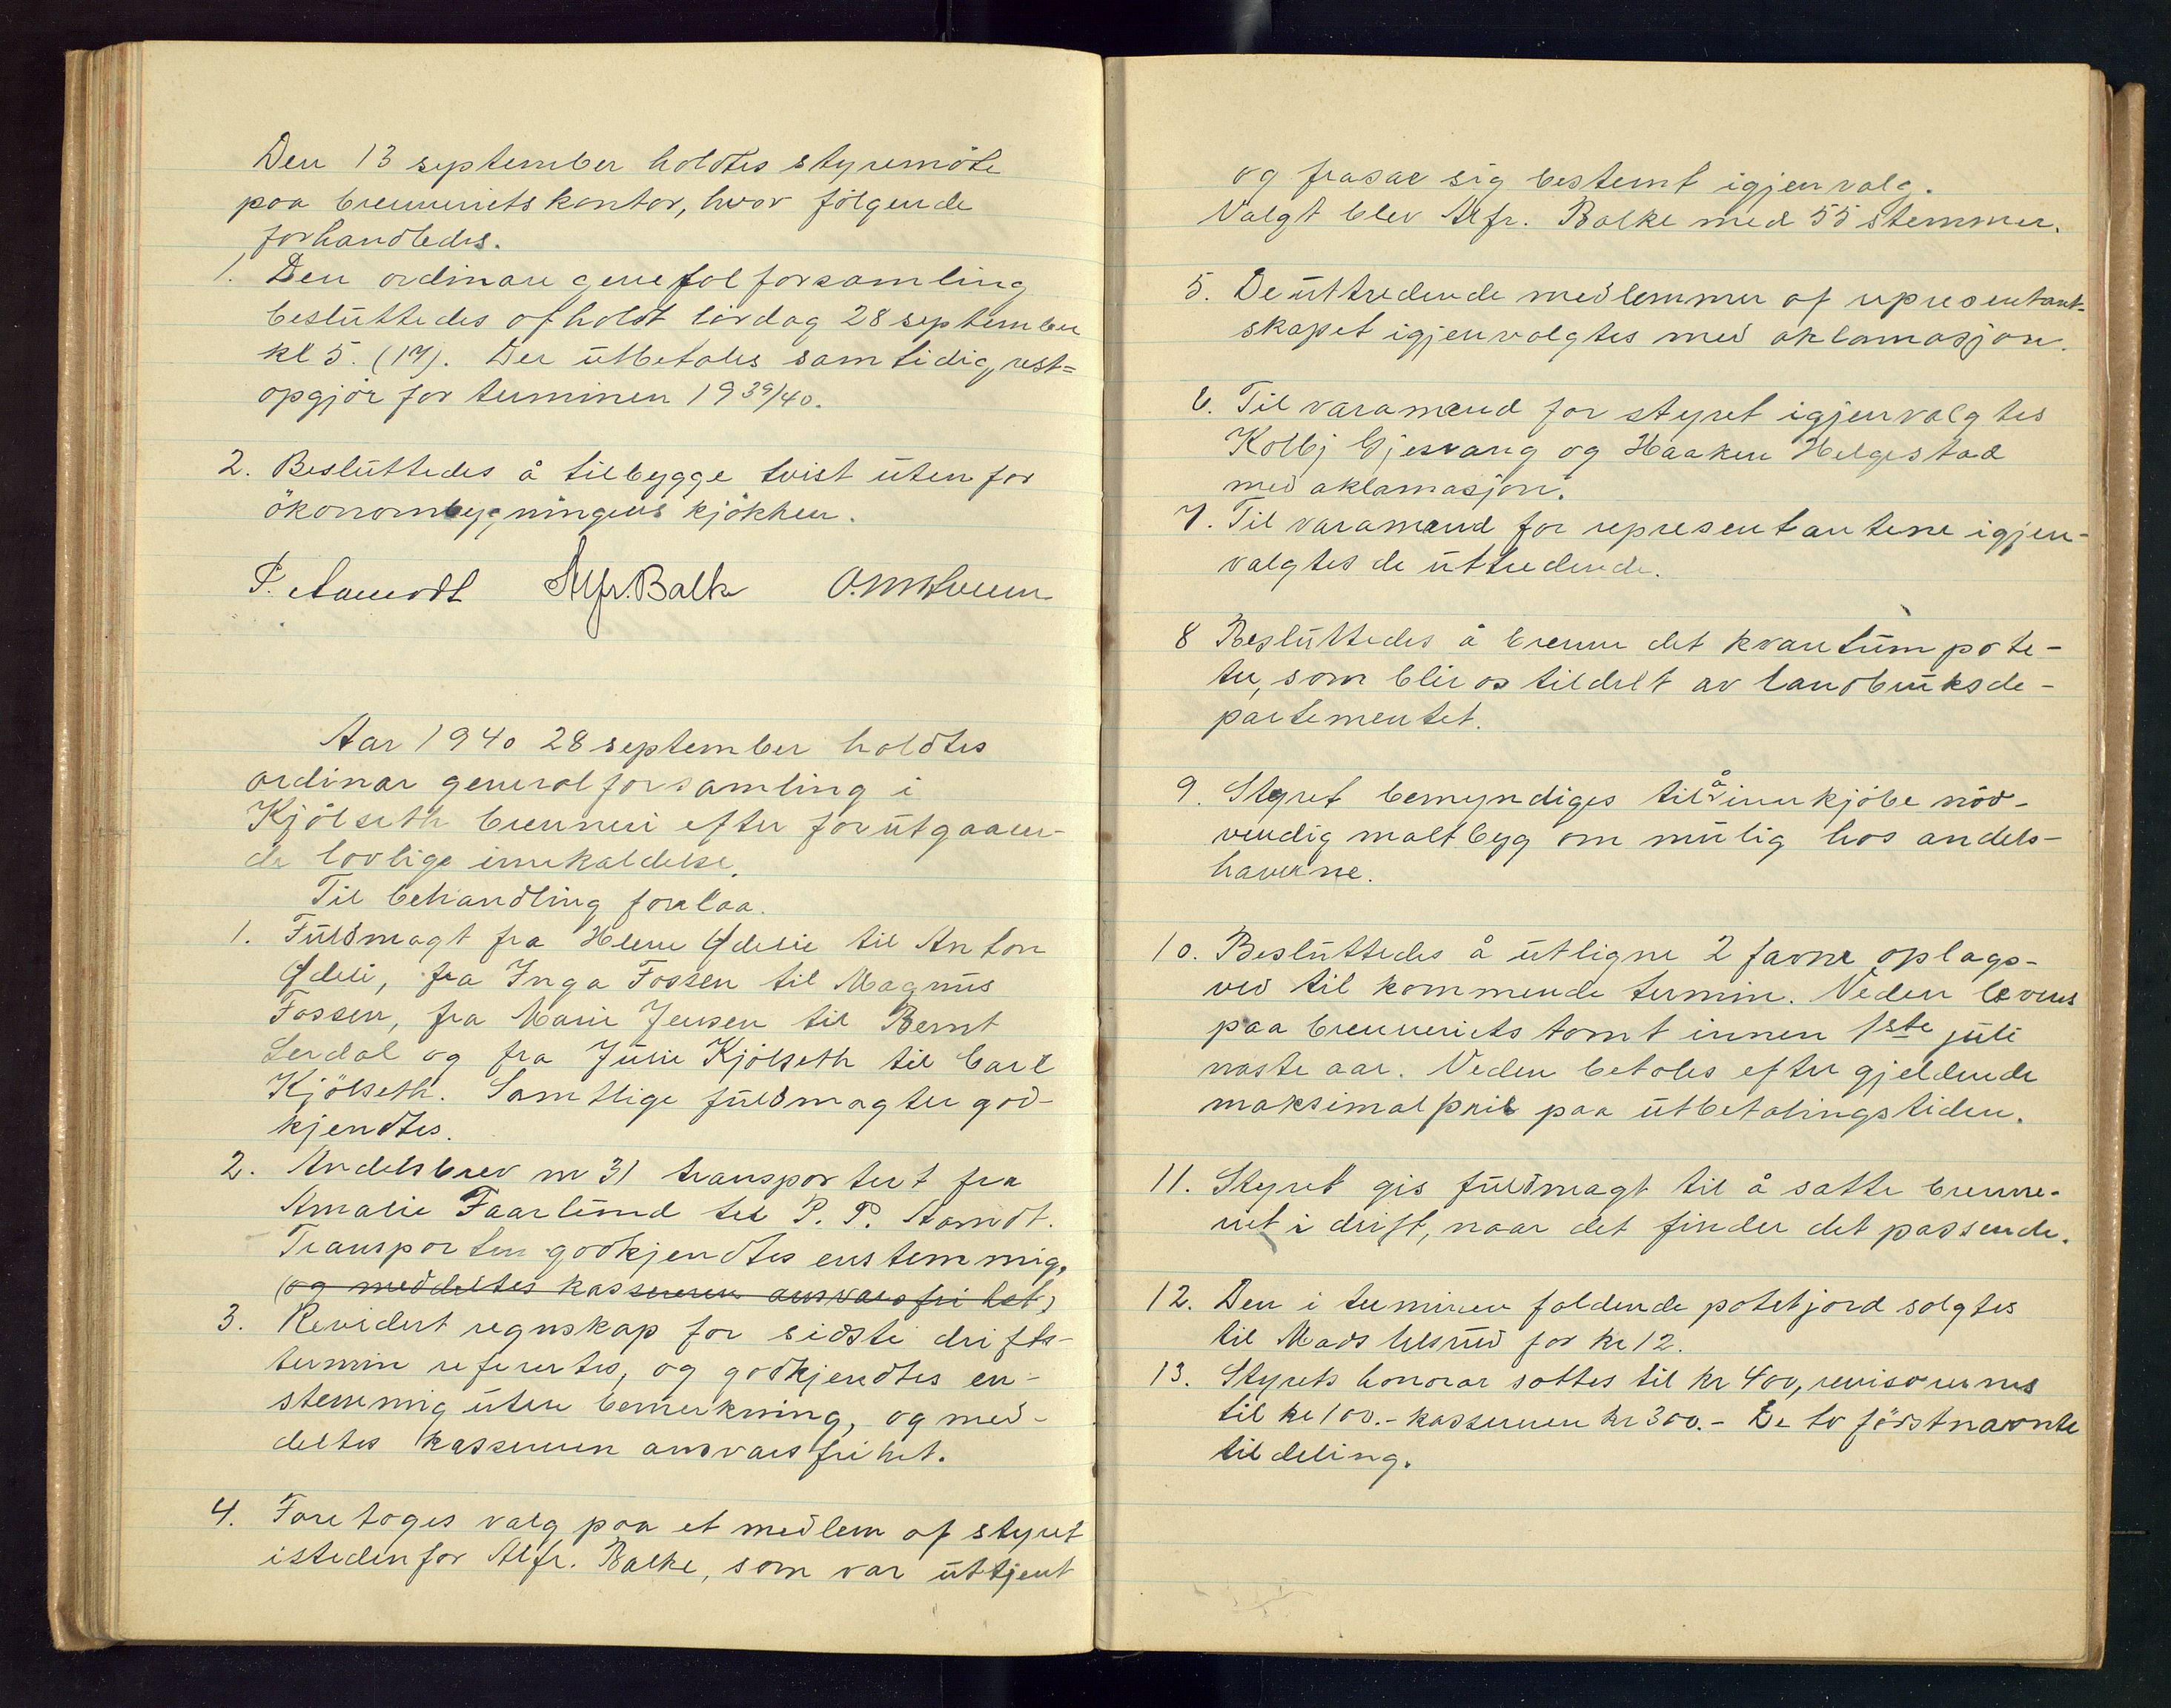 Den 13 september holdtes styremöte
paa brenneriets kontor, hvor fölgende
forhandledes.
1. Den ordinære generalforsamling
besluttedes afholdt lördag 28 september
kl 5. (17). Der utbetales samtidig rest=
opgjör for terminen 1939/40.
2. Besluttedes å tilbygge tvist utenfor
ökonombygningens kjökken.
P. Aamodt Alfr. Balke
Aar 1940 28 september holdtes
ordinær generalforsamling i
Kjölseth brenneri efter forutgaaen-
de lovlige innkaldelse.
Til behandling forelaa.
1. Fuldmagt fra Helene Ødelie til Anton
Ødeli, fra Inga Fossen til Magnus
Fossen, fra Marie Jensen til Bernt
Lerdal og fra Julie Kjölseth til Carl
Kjölseth. Samtlige fuldmagter god-
kjendtes.
2. Andelsbrev nr 31 transportert fra
Amalie Faarlund til P. P. Aamodt.
Transporten godkjendtes enstemmig.
(og meddeltes kassereren ansvarsfrihet)
3. Revidert regnskap for sidste drifts-
termin refereertes, og godkjendtes en-
stemmig uten bemerkning, og med-
deltes kassereren ansvarsfrihet.
4. Foretoges valg paa et medlem af styret
istedenfor Alfr. Balke, som var uttjent
og frasae sig bestemt igjenvalg.
Valgt blev Alfr. Balke med 55 stemmer.
5. De uttredende medlemmer af representant-
skapet igjenvalgtes med aklamasjon.
6. Til varamænd for styret igjenvalgtes
Kolbj Gjesvang og Haaken Helgestad
med aklamasjon.
7. Til varamænd for representantene igjen-
valgtes de uttredende.
8 Besluttedes å brenne det kvantum pote-
ter, som blir os tildelt av landbruksde-
partementet.
9. Styret bemyndiges til å innkjöbe nöd-
vendig maltbyg om mulig hos andels-
haverne.
10. Besluttedes å utligne 2 favne oplags-
ved til kommende termin. Veden leveres
paa brenneriets tomt innen 1ste juli
næste aar. Veden betales efter gjeldende
maksimalpris paa utbetalingstiden.
11. Styret gis fuldmagt til å sætte brenne-
riet i drift, naar det finder det passende.
12. Den i terminen faldende potetjord solgtes
til Mads Ulsrud for kr 12.
13. Styrets honorar sattes til kr 400, revisorernes
til kr 100.- kassereren kr 300.- De to förstnævnte
til deling.